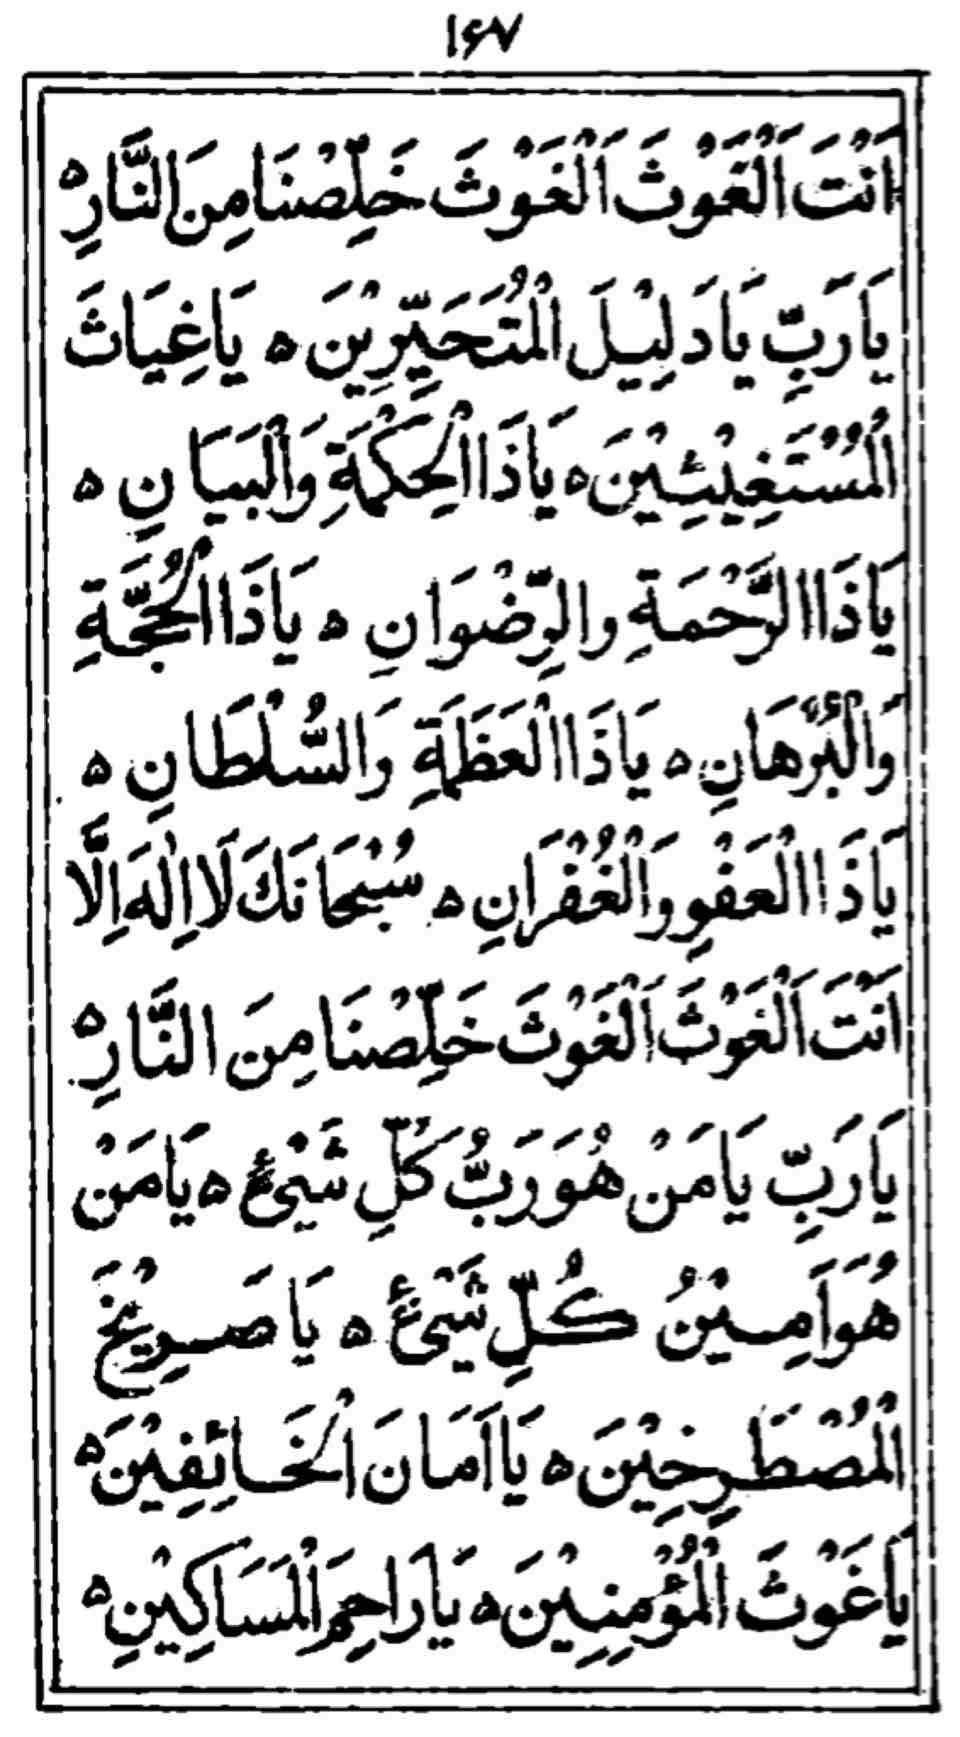 ۱۶۷
اَنْتَ اَلْغَوْثَ اَلْغَوْثَ خَلِّصْنَا مِنَ النَّارِ ه
يَا رَبِّ يَا دَلِيْلَ الْمُتَحَيِّرِيْنَ ه يَا غِيَاثَ
الْمُسْتَغِيْثِيْنَ ه يَا ذَا الْحِكْمَةِ وَالْبَيَانِ ه
يَا ذَا الرَّحْمَةِ والرِّضْوَانِ ه يَا ذَا الْحُجَّةِ
وَالْبُرْهَانِ ه يَا ذَا الْعَظَمَةِ وَالسُّلْطَانِ ه
يَا ذَا الْعَفْوِ وَالْغُفْرَانِ ه سُبْحَانَكَ لَا اِلٰهَ اِلَّا
اَنْتَ اَلْغَوْثَ اَلْغَوْثَ خَلِّصْنَا مِنَ النَّارِ ه
يَا رَبِّ يَا مَنْ هُوَ رَبُّ كُلِّ شَيْئٍ ه يَا مَنْ
هُوَ اَمِيْنُ كُلِّ شَيْئٍ ه يَا صَرِيْخَ
الْمُصْطَرِخِيْنَ ه يَا اَمَانَ الْخَائِفِيْنَ ه
يَا غَوْثَ الْمُؤْمِنِيْنَ ه يَا رَاحِمَ الْمَسَاكِيْنِ ه